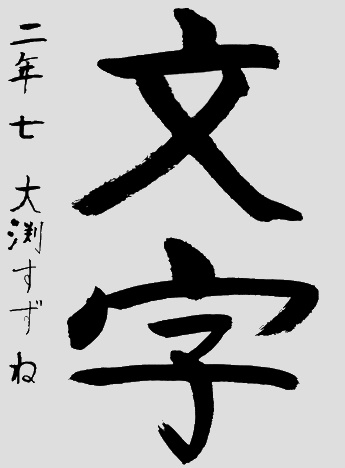 文字
二年七 大渕すずね